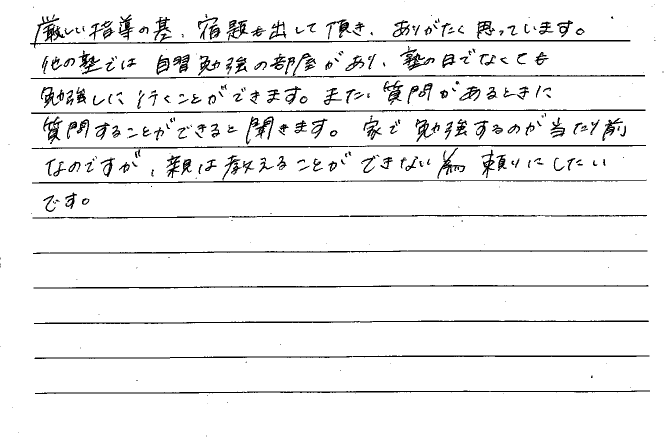 厳しい指導の基、宿題を出して頂き、ありがたく思っています。
他の塾では自習勉強の部屋があり、塾の日でなくても
勉強しに行くことができます。また、質問があるときに
質問することができると聞きます。家で勉強するのが当たり前
なのですが、親は教えることができない為頼りにしたい
です。